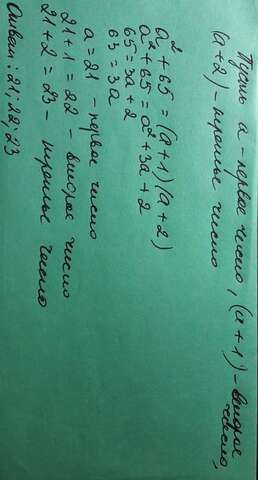 Пусть а - первое число, (а+1) - второе
число,
(а+2) - третье число
а² + 65 = (а+1)(а+2)
а² + 65 = а² + 3а + 2
65 = 3а + 2
63 = 3а
а = 21 - первое число
21 + 1 = 22 - второе число
21 + 2 = 23 - третье число
Ответ: 21; 22; 23